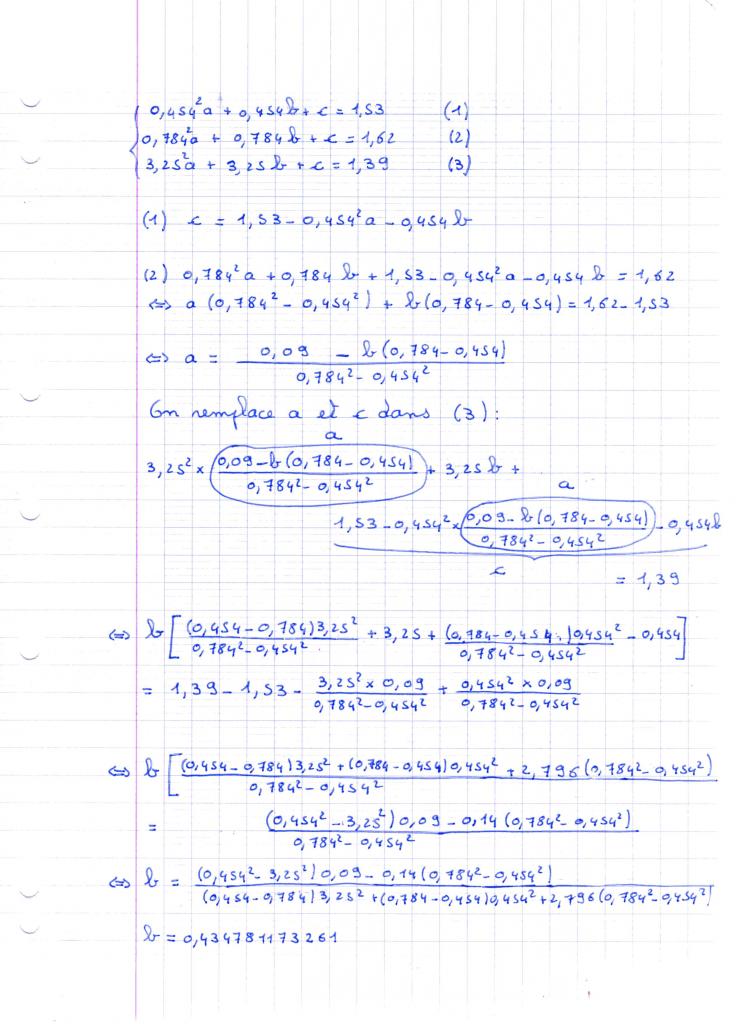 0,454²a + 0,454b + c = 1,53 (1)
0,784²a + 0,784b + c = 1,62 (2)
3,25²a + 3,25b + c = 1,39 (3)
(1) c = 1,53 - 0,454²a - 0,454b
(2) 0,784²a + 0,784b + 1,53 - 0,454²a - 0,454b = 1,62
⇔ a(0,784² - 0,454²) + b(0,784 - 0,454) = 1,62 - 1,53
⇔ a = 0,09 - b(0,784 - 0,454)
0,784² - 0,454²
On remplace a et c dans (3):
a
3,25² × 0,09 - b(0,784 - 0,454) + 3,25b +
0,784² - 0,454²
a
1,53 - 0,454² × 0,09 - b(0,784 - 0,454) - 0,454b
0,784² - 0,454²
c
= 1,39
⇔ b[(0,454 - 0,784)3,25² + 3,25 + (0,784 - 0,454)0,454² - 0,454]
0,784² - 0,454² 0,784² - 0,454²
= 1,39 - 1,53 - 3,25² × 0,09 + 0,454² × 0,09
0,784² - 0,454² 0,784² - 0,454²
⇔ b[(0,454 - 0,784)3,25² + (0,784 - 0,454)0,454² + 2,796(0,784² - 0,454²)
0,784² - 0,454²
= (0,454² - 3,25²)0,09 - 0,14(0,784² - 0,454²)
0,784² - 0,454²
⇔ b = (0,454² - 3,25²)0,09 - 0,14(0,784² - 0,454²)
(0,454 - 0,784)3,25² + (0,784 - 0,454)0,454² + 2,796(0,784² - 0,454²)
b = 0,434781173261